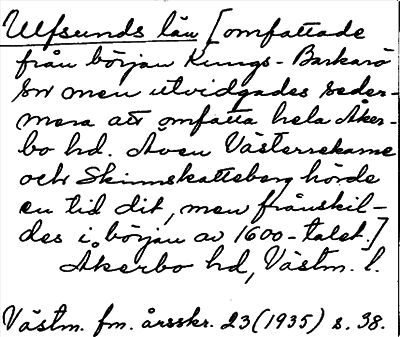 Ulfsunds län [omfattade
från början Kungs-Barkarö
sn men utvidgades seder-
mera att omfatta hela Åker-
bo hd. Även Västervåla
och Skinnskatteberg hörde
en tid dit, men frånskil-
des i början av 1600-talet.]
Åkerbo hd, Västm. l.
Västm. fm. årsskr. 23 (1935) s. 38.